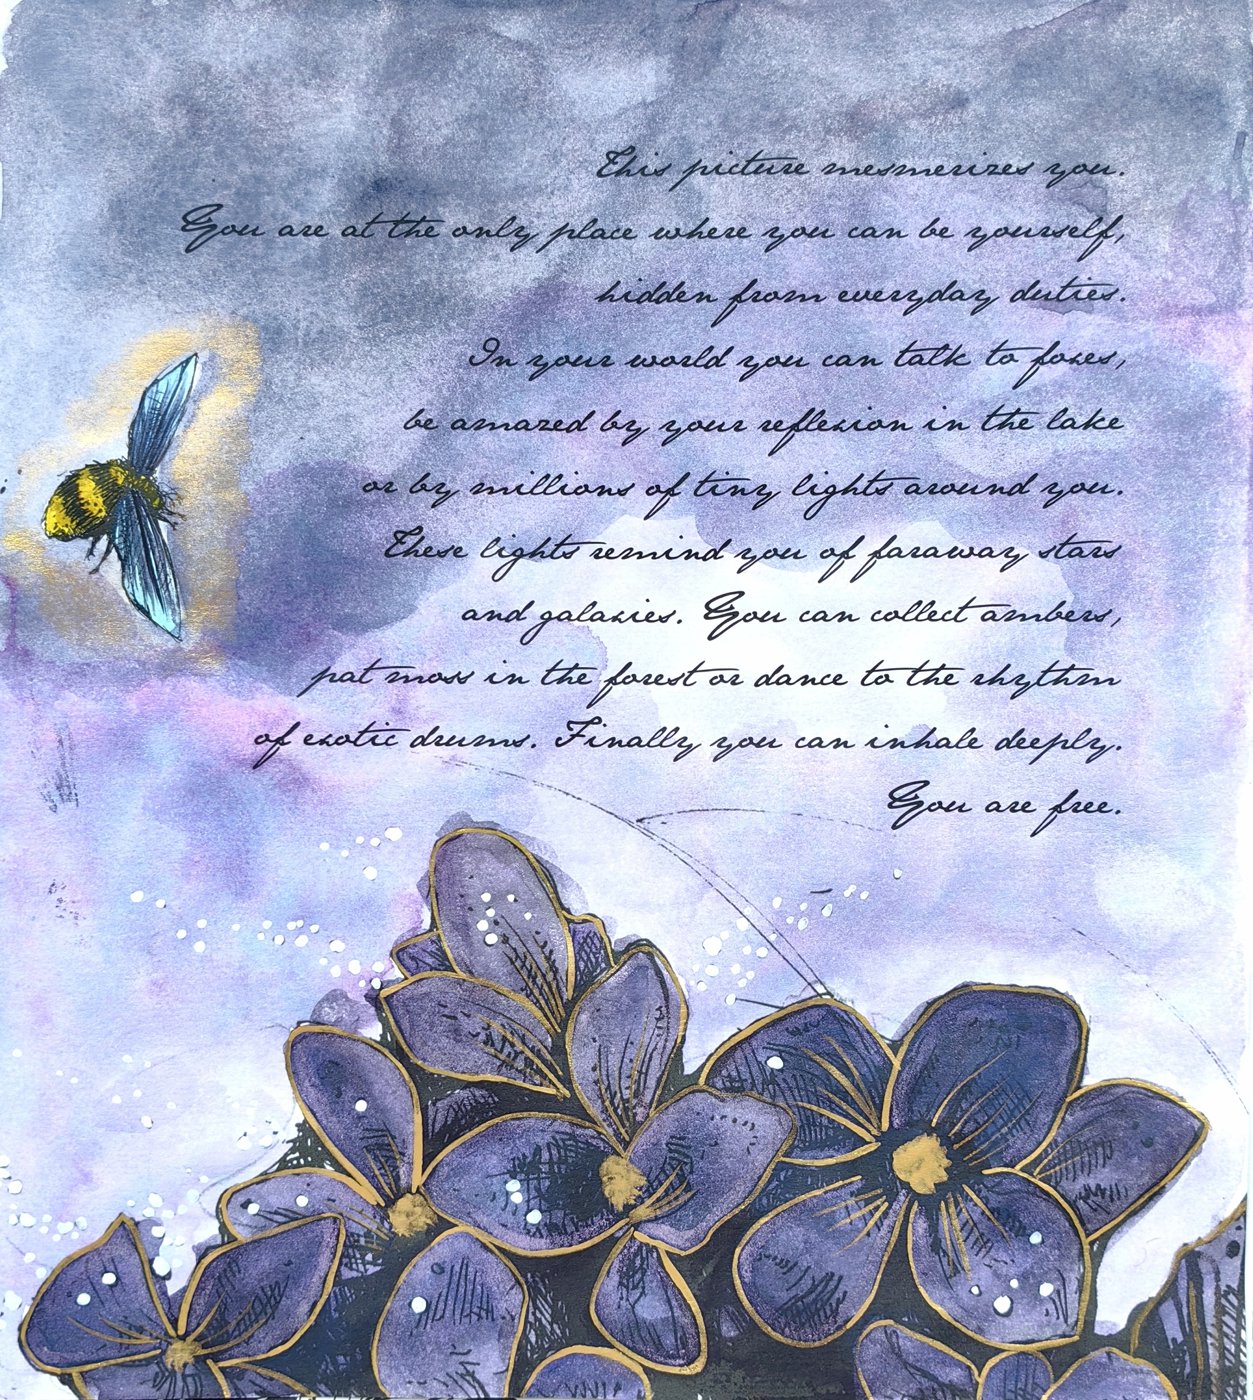 This picture mesmerizes you.
You are at the only place where you can be yourself,
hidden from everyday duties.
In your world you can talk to foxes,
be amazed by your reflexion in the lake
or by millions of tiny lights around you.
These lights remind you of faraway stars
and galaxies. You can collect ambers,
pat moss in the forest or dance to the rhythm
of exotic drums. Finally you can inhale deeply.
You are free.